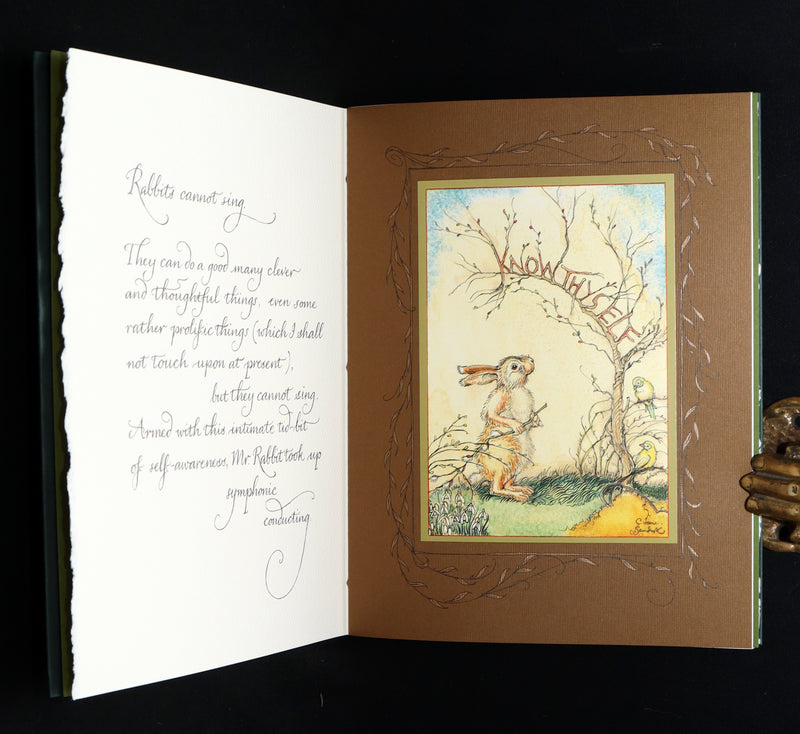 Rabbits cannot sing.
They can do a good many clever
and thoughtful things, even some
rather prolific things (which I shall
not touch upon at present),
but they cannot sing.
Armed with this intimate tid-bit
of self-awareness, Mr. Rabbit took up
symphonic
conducting.
KNOW THYSELF